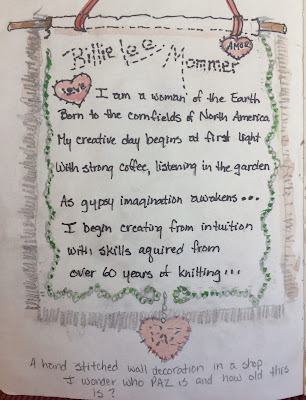 Billie Lee
Mommer
AMOR
LOVE
I am a woman of the Earth
Born to the cornfields of North America
My creative day begins at first light
With strong coffee, listening in the garden
As gypsy imagination awakens...
I begin creating from intuition
with skills aquired from
over 60 years of knitting...
PAZ
A hand stitched wall decoration in a shop
I wonder who PAZ is and how old this
is?